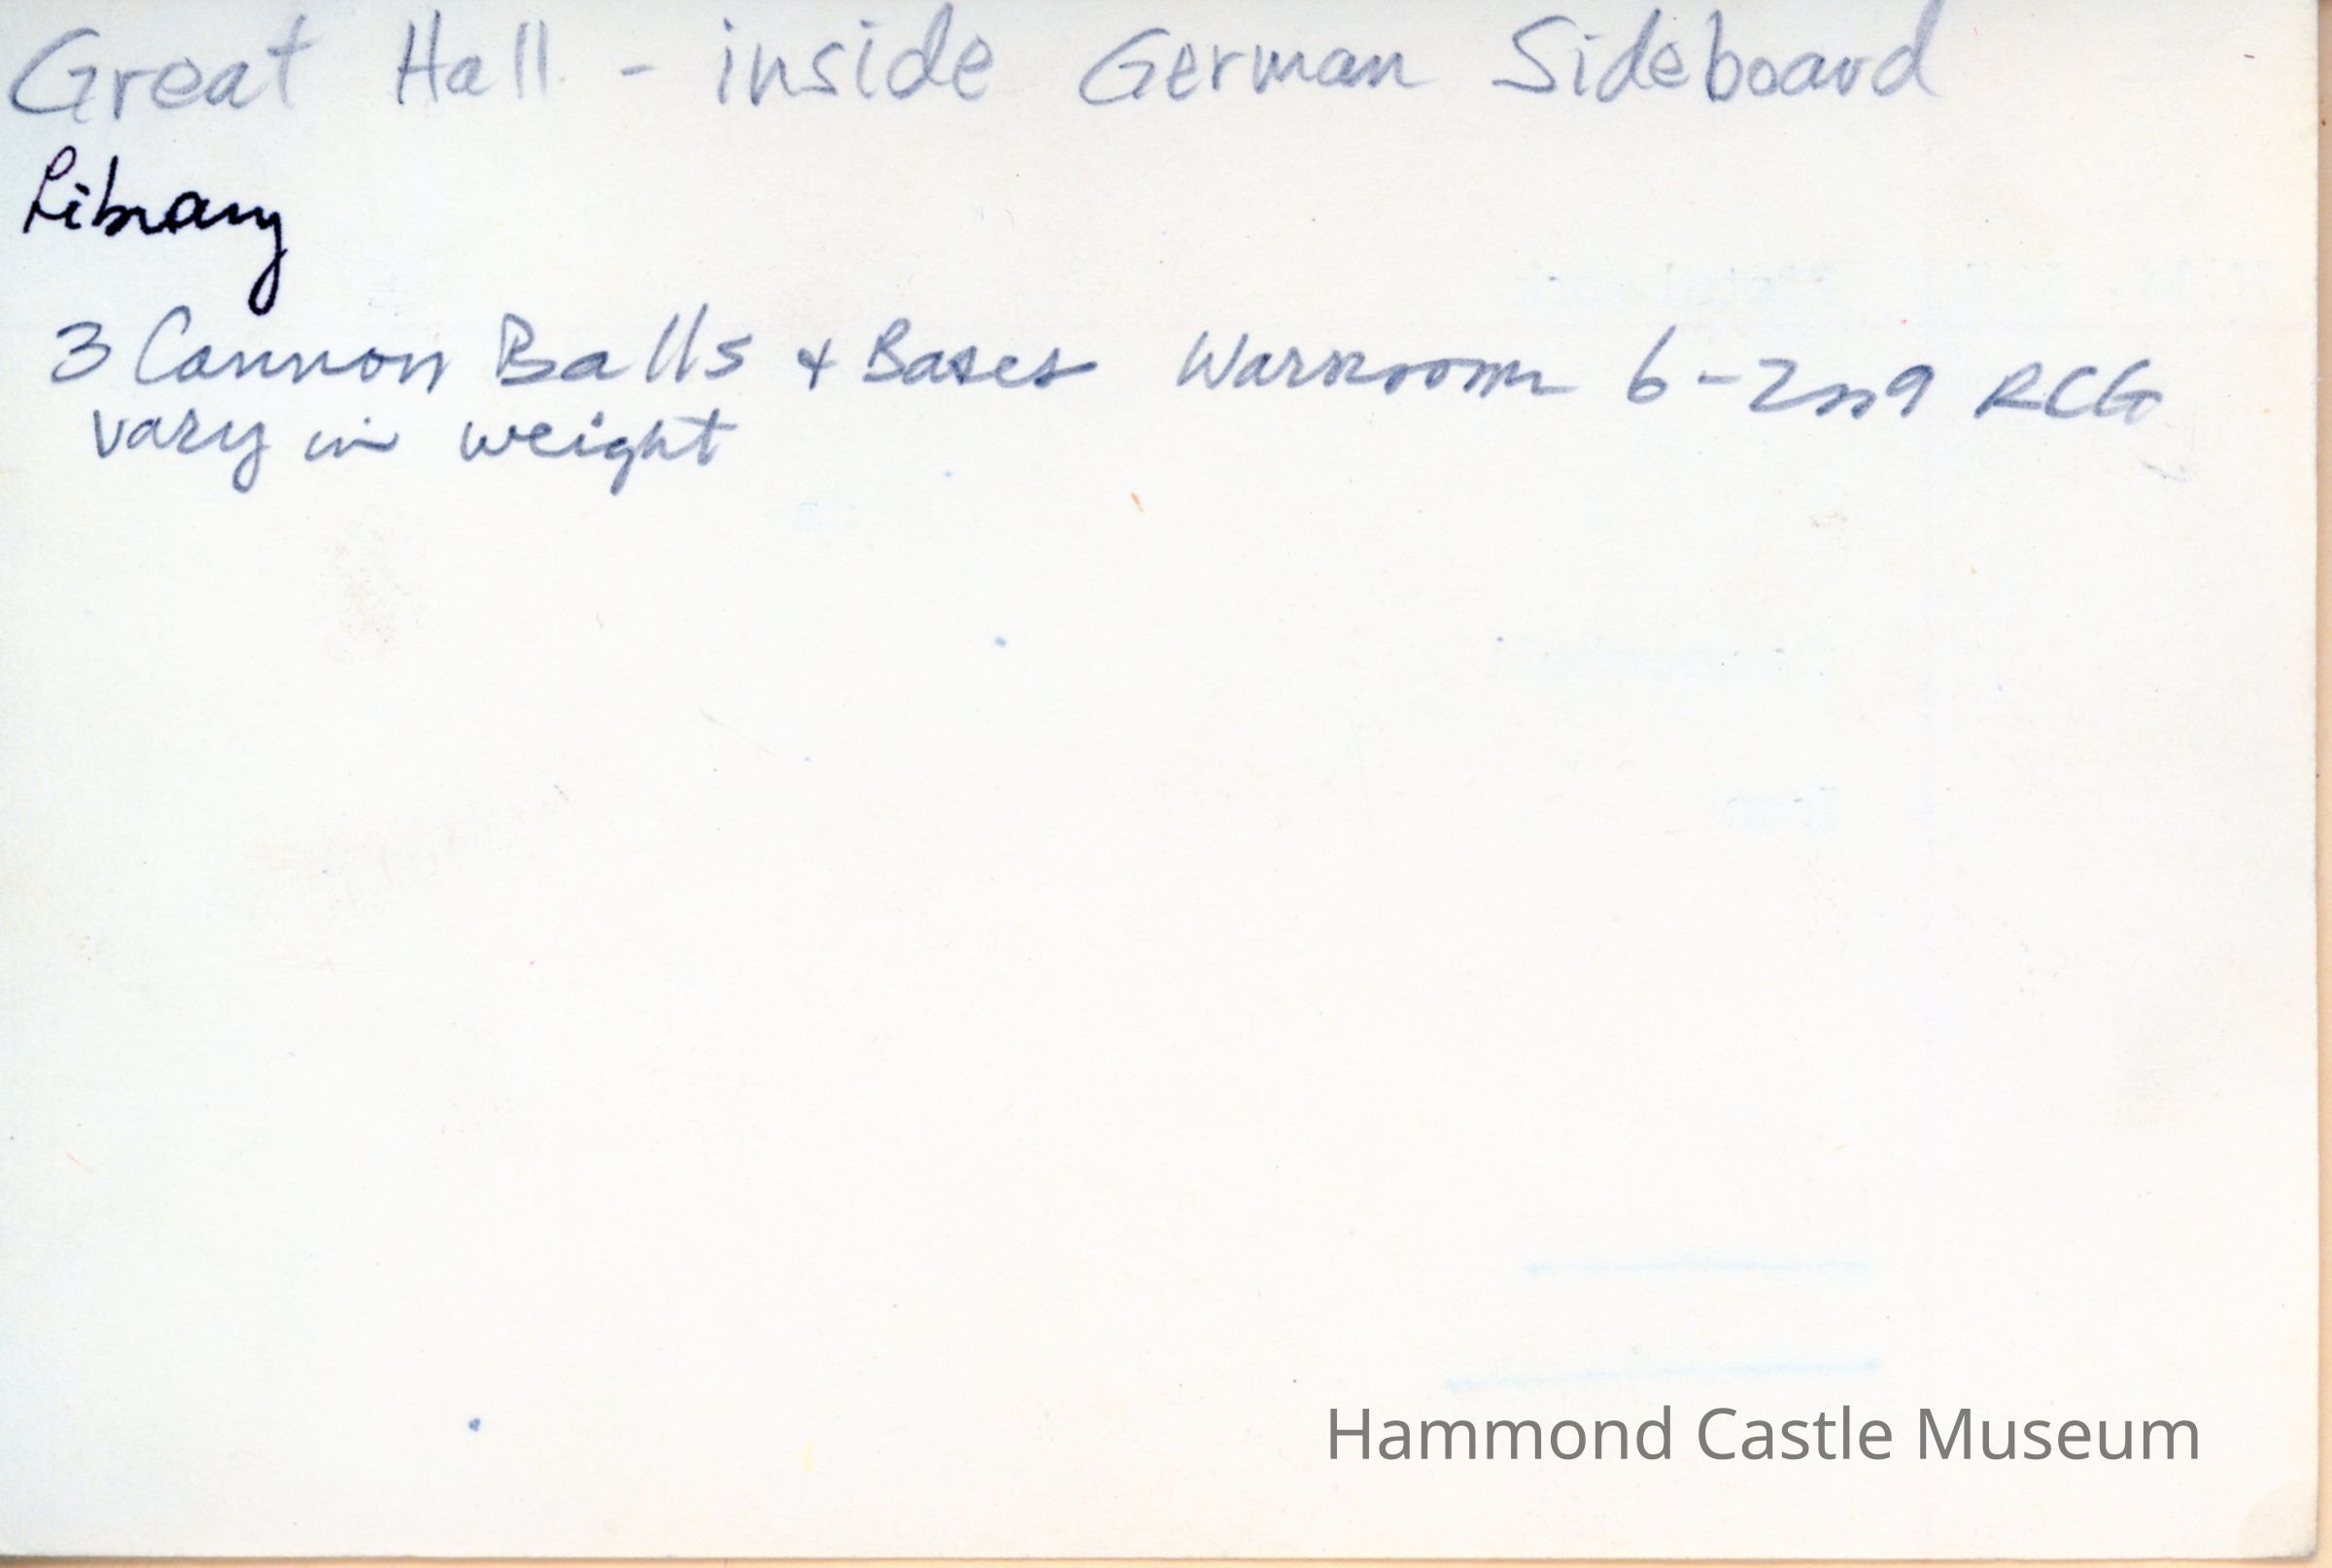 Great Hall - inside German Sideboard
Library
3 Cannon Balls + Bases Warroom 6-2009 RCG
vary in weight
Hammond Castle Museum